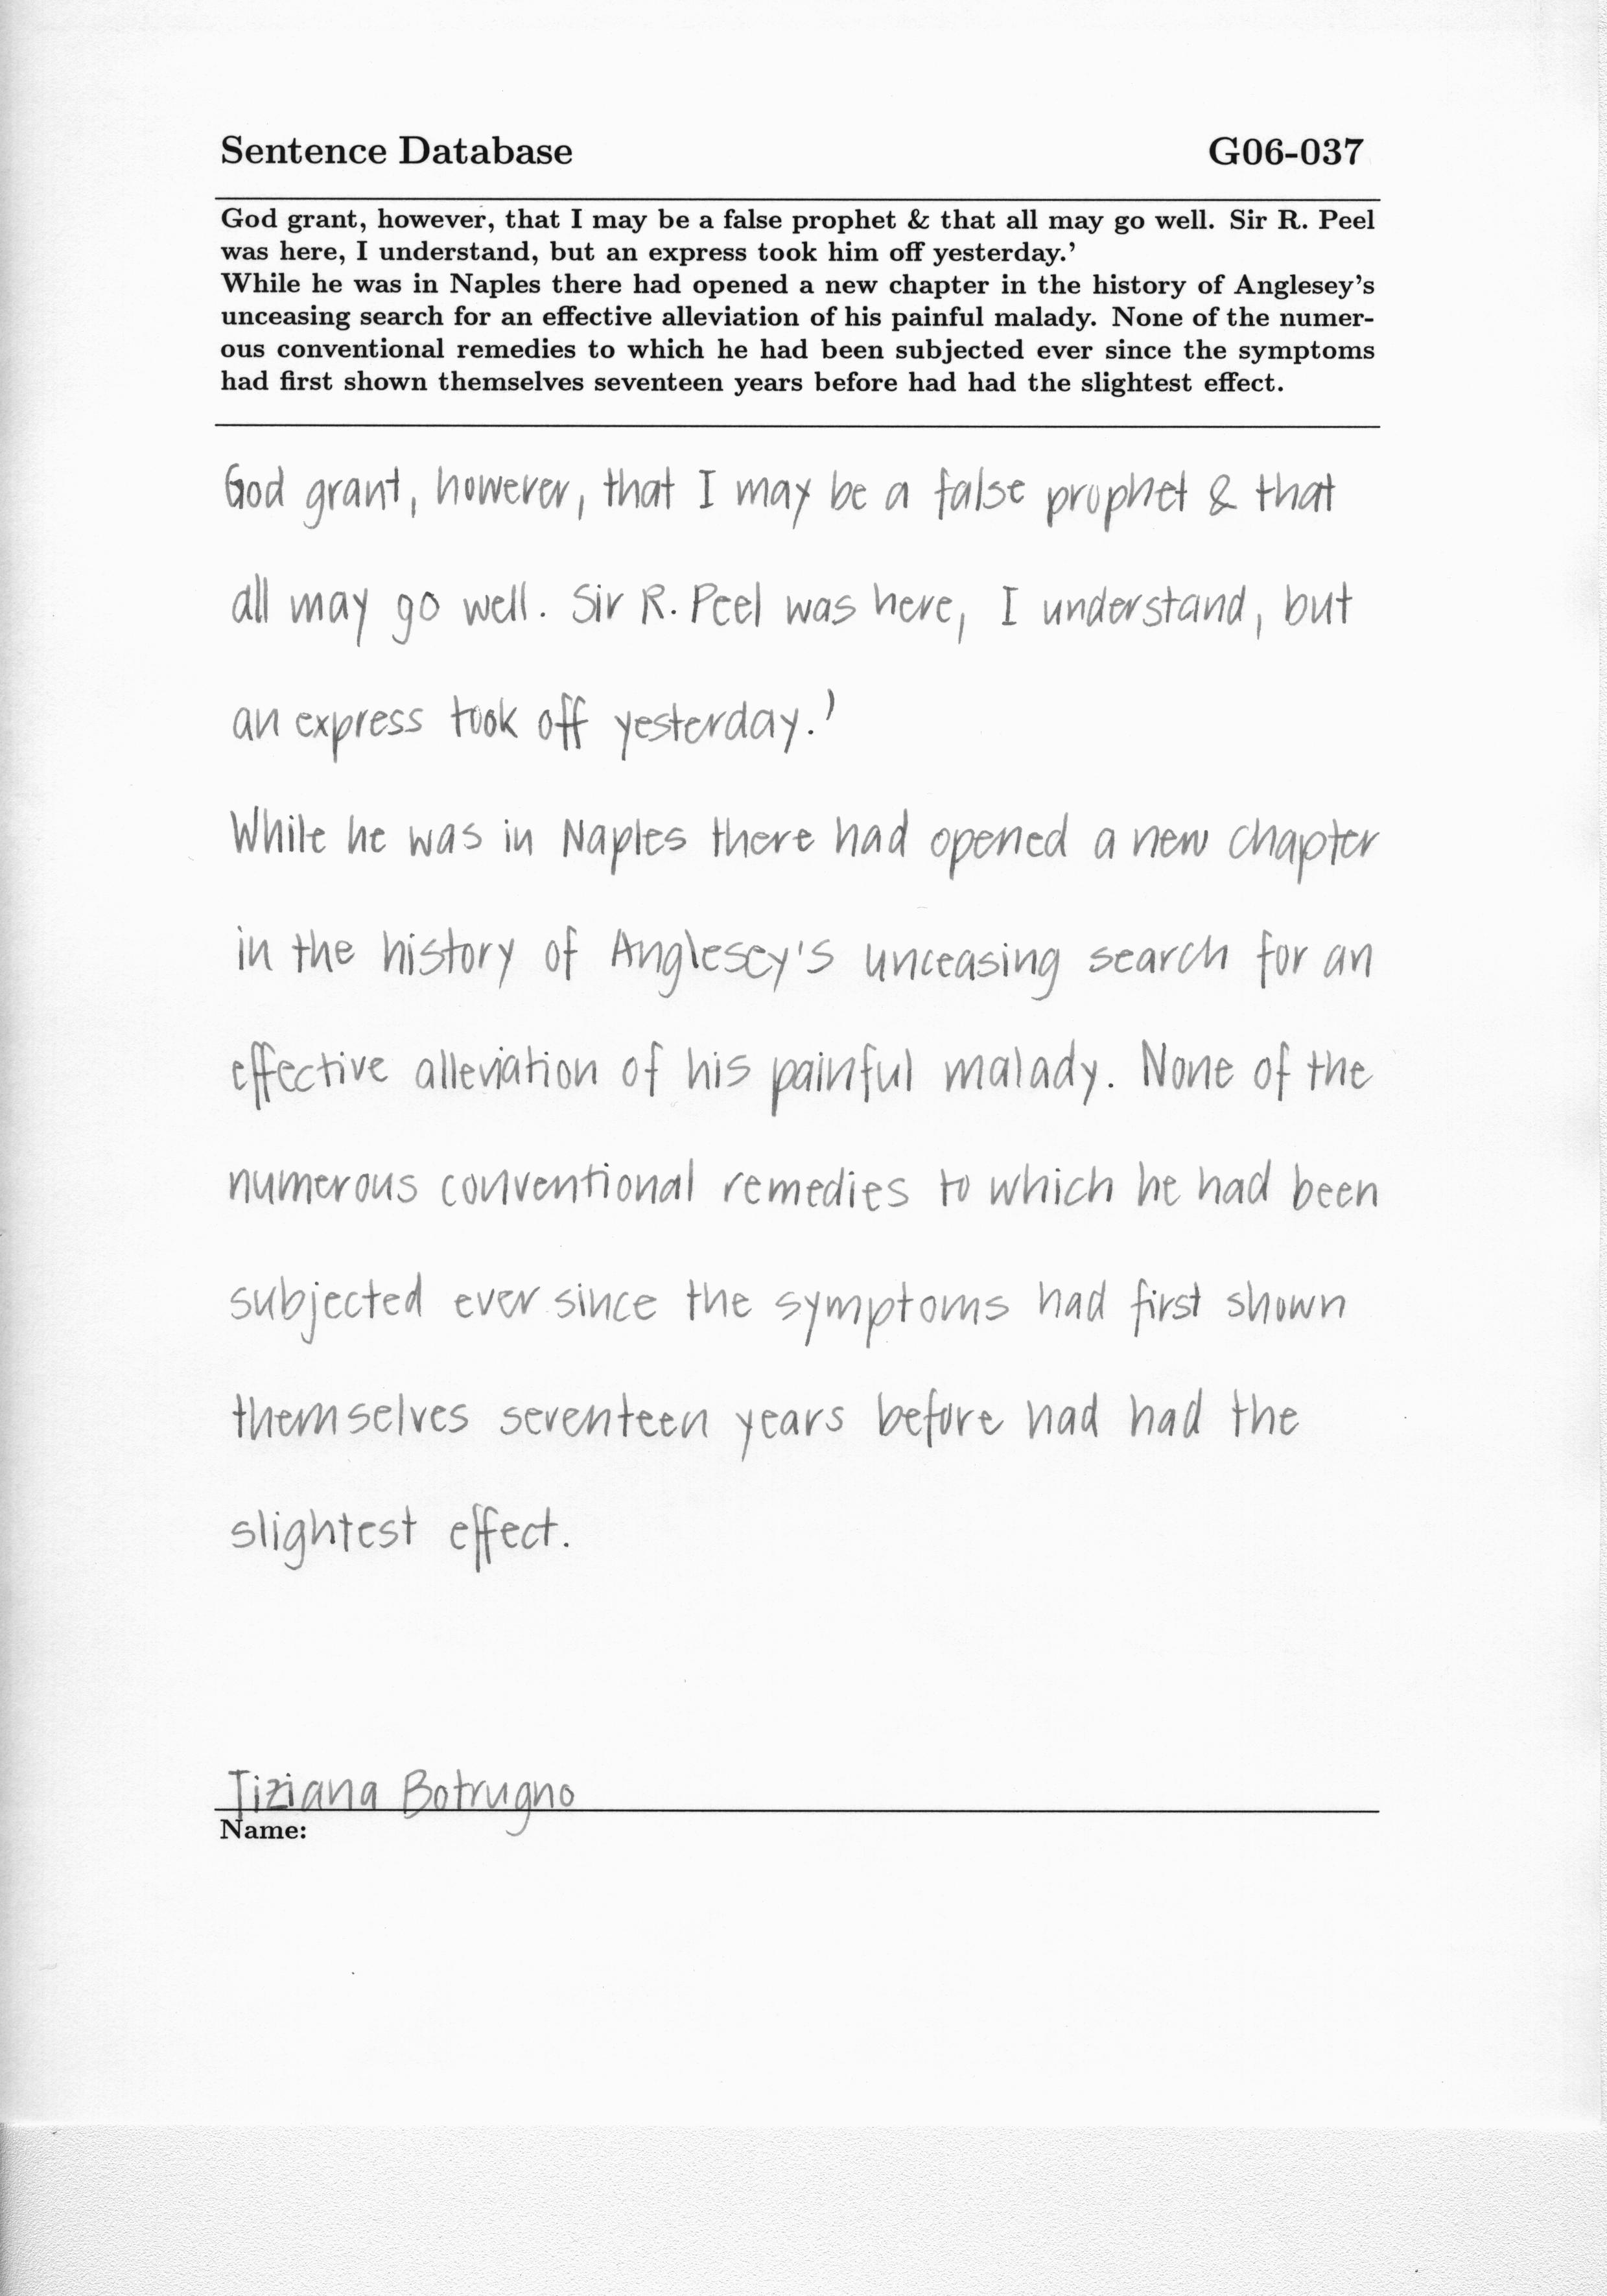 Sentence Database G06-037
God grant, however, that I may be a false prophet & that all may go well. Sir R. Peel
was here, I understand, but an express took him off yesterday.’
While he was in Naples there had opened a new chapter in the history of Anglesey’s
unceasing search for an effective alleviation of his painful malady. None of the numer-
ous conventional remedies to which he had been subjected ever since the symptoms
had first shown themselves seventeen years before had had the slightest effect.
God grant, however, that I may be a false prophet & that
all may go well. Sir R. Peel was here, I understand, but
an express took off yesterday.’
While he was in Naples there had opened a new chapter
in the history of Anglesey's unceasing search for an
effective alleviation of his painful malady. None of the
numerous conventional remedies to which he had been
subjected ever since the symptoms had first shown
themselves seventeen years before had had the
slightest effect.
Tiziana Botrugno
Name: